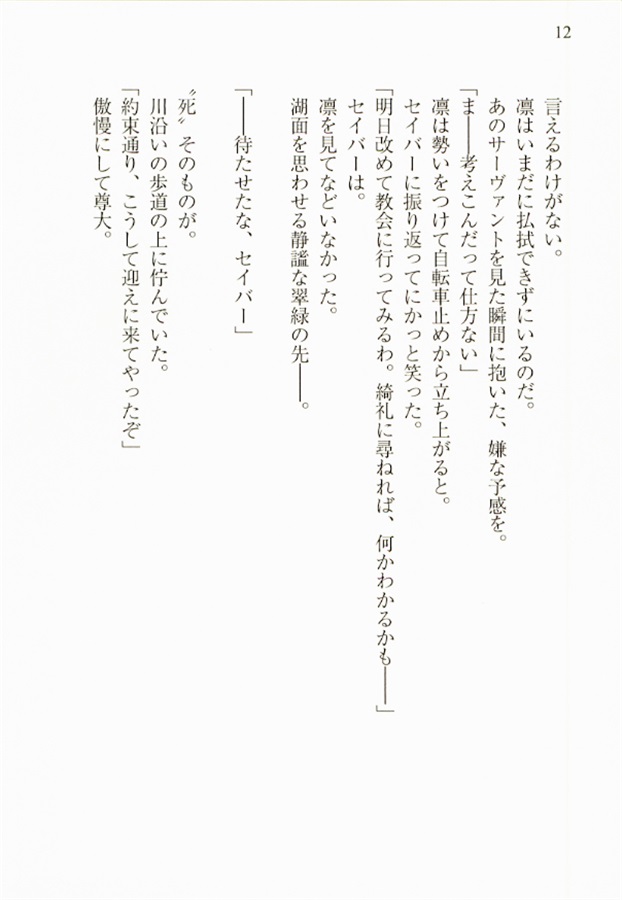 12
言えるわけがない。
凛はいまだに払拭できずにいるのだ。
あのサーヴァントを見た瞬間に抱いた、嫌な予感を。
「ま――考えこんだって仕方ない」
凛は勢いをつけて自転車止めから立ち上がると。
セイバーに振り返ってにかっと笑った。
「明日改めて教会に行ってみるわ。綺礼に尋ねれば、何かわかるかも――」
セイバーは。
凛を見てなどいなかった。
湖面を思わせる静謐な翠緑の先――。
「――待たせたな、セイバー」
〝死〟そのものが。
川沿いの歩道の上に佇んでいた。
「約束通り、こうして迎えに来てやったぞ」
傲慢にして尊大。